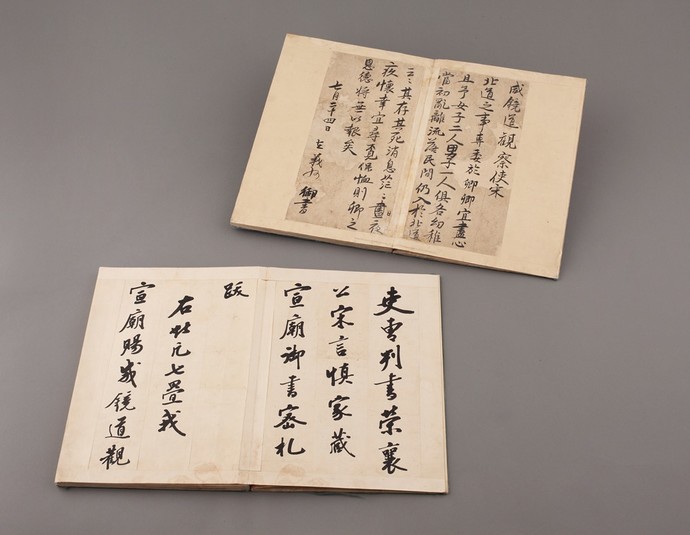 咸鏡道觀察使宋
北道之事專委於卿卿宜盡心
且予女子二人男子一人俱各幼稚
當初亂離流落民間仍入於北道
云〻其存其死消息茫〻晝夜
疚懷幸宜尋覓保恤則卿之
恩德將無以報矣
七月二十四日 在義州 御書
吏曹判書榮襄
公宋言慎家藏
宣廟御書密札
跋
右 七疊我
宣廟賜咸鏡道觀